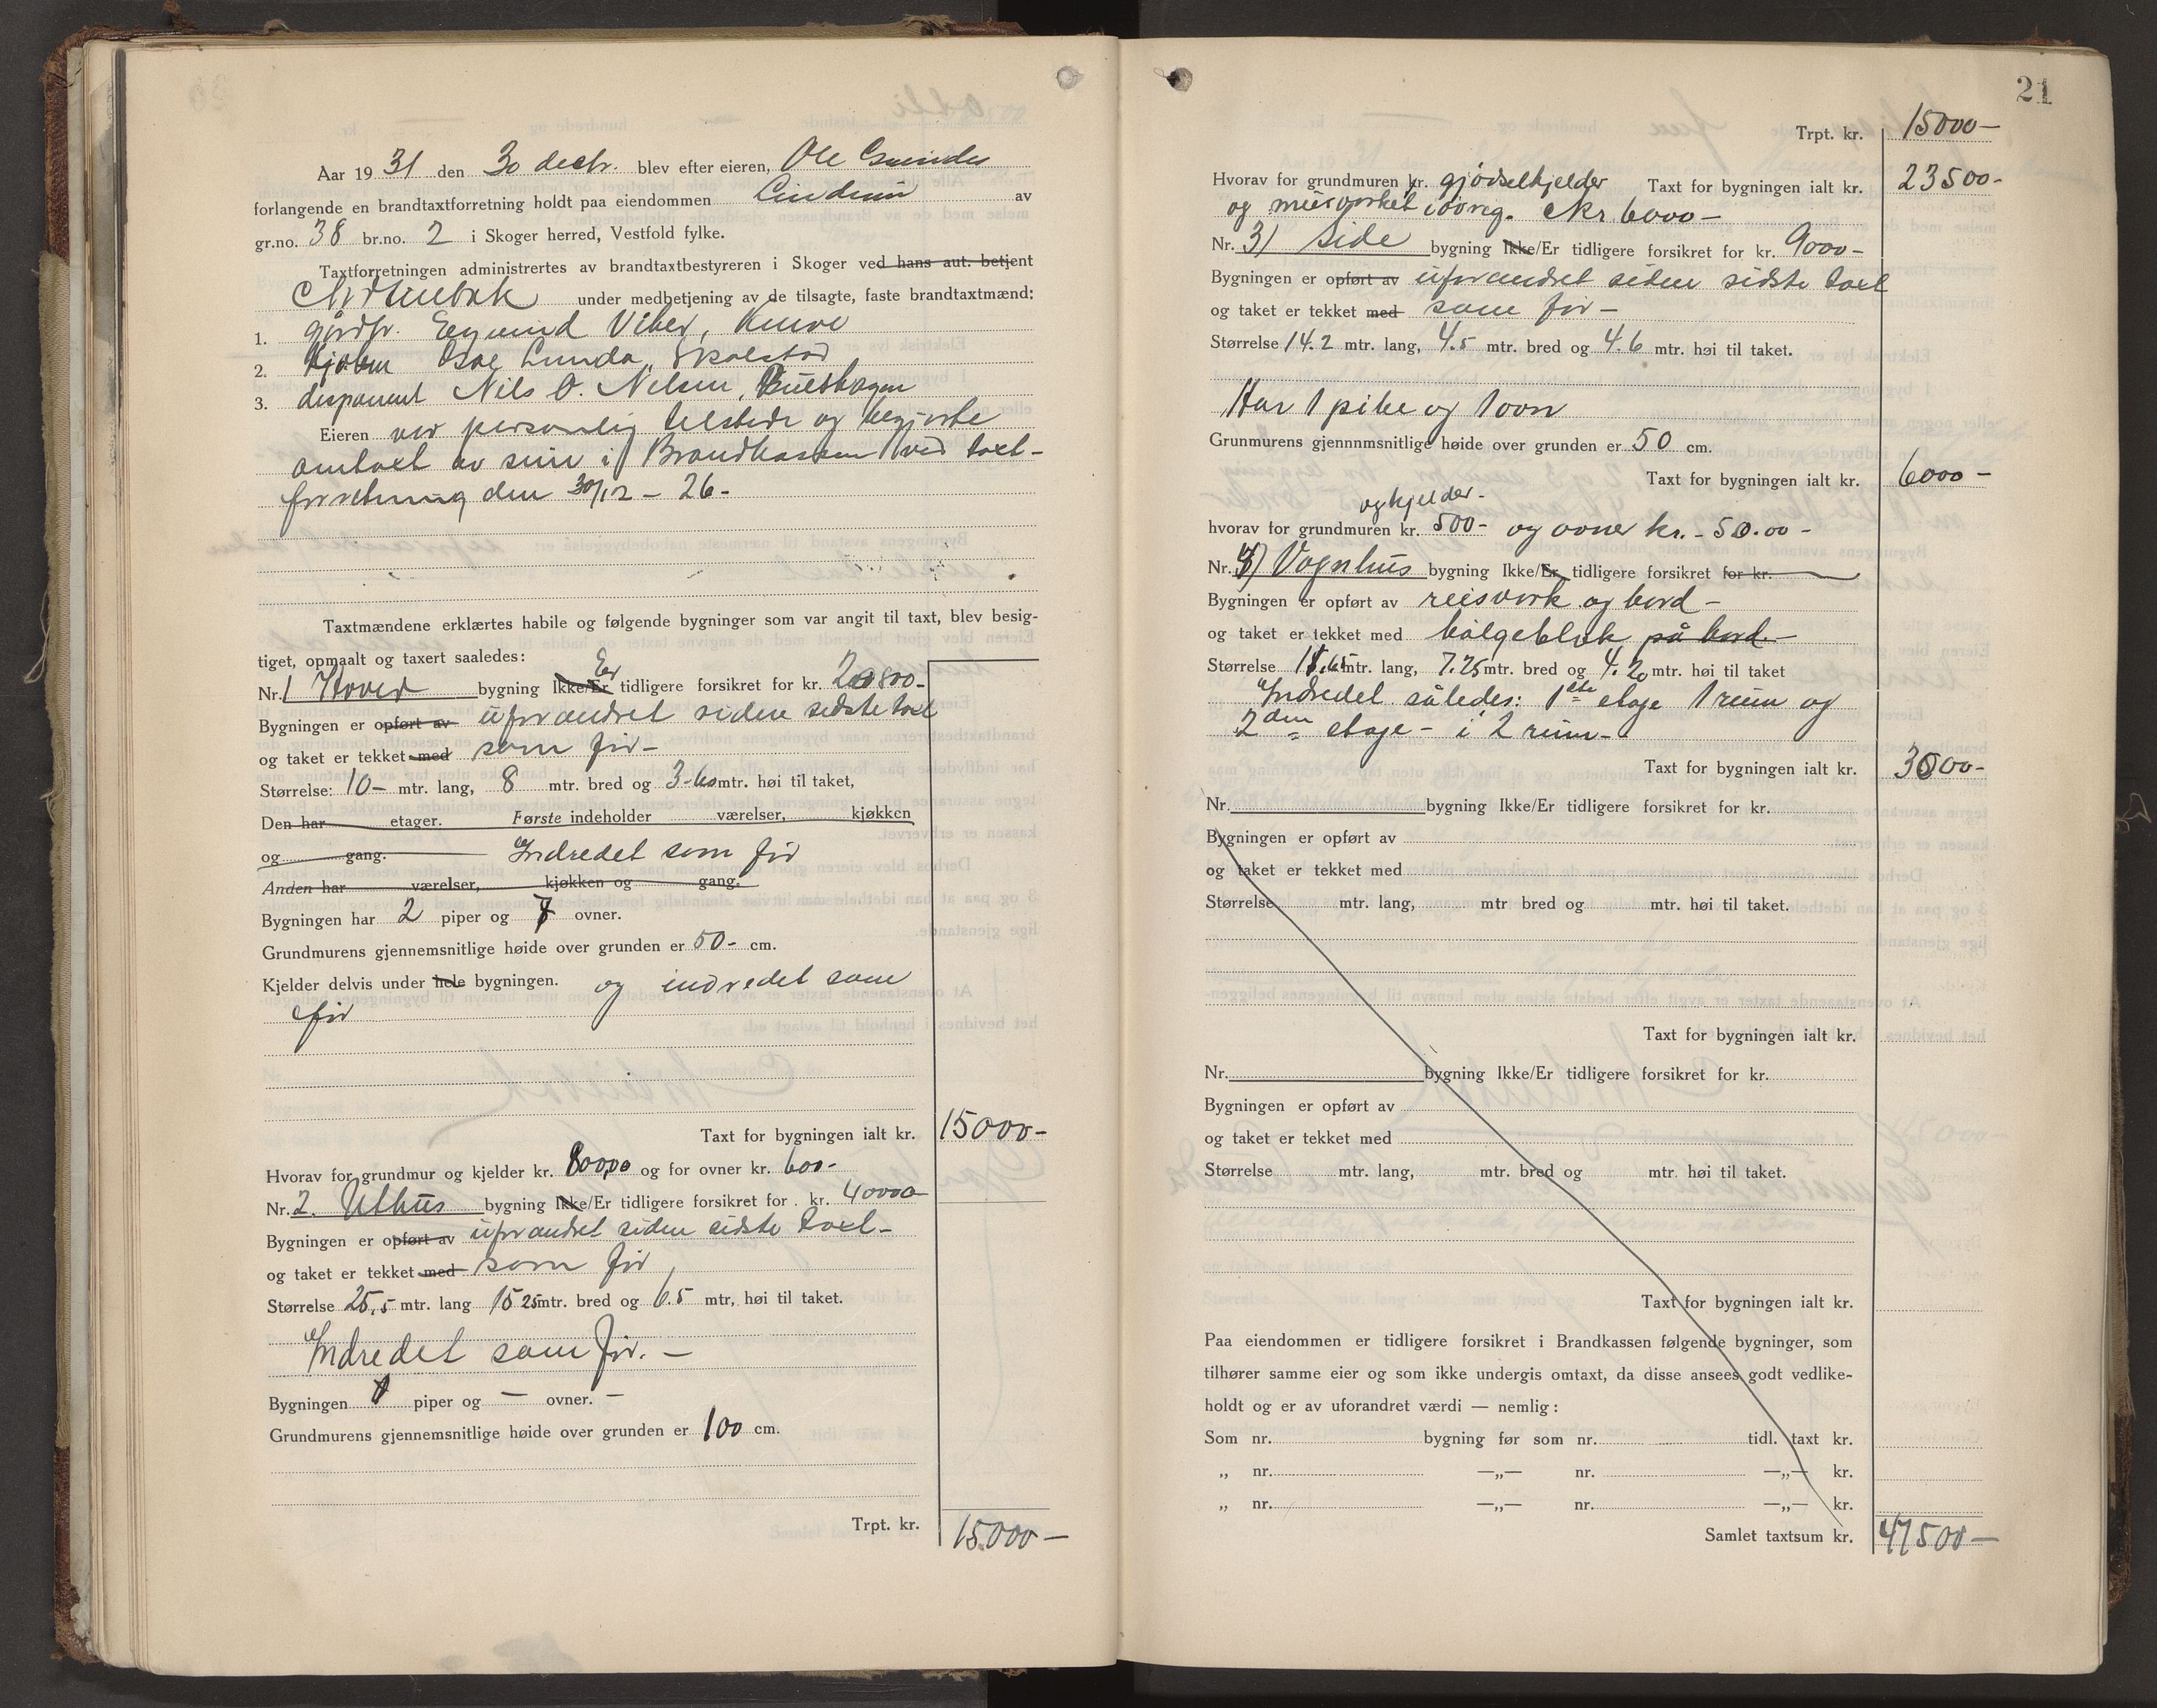 Aar 1931 den 30 decbr. blev efter eieren, Ole
forlangende en brandtaxtforretning holdt paa eiendommen Lindum av
gr.no. 38 br.no. 2 i Skoger herred, Vestfold fylke.
Taxtforretningen administrertes av brandtaxtbestyreren i Skoger ved hans aut. betjent
under medbetjening av de tilsagte, faste brandtaxtmænd:
1. gårdbr.
2. Lunda, Skalstad
3. disponent Nils O. Nelsen,
Eieren var personlig tilstede og begjærte
omtaxt av sine i Brandkassen ved taxt-
forretning den 30/12 - 26.
Taxtmændene erklærtes habile og følgende bygninger som var angit til taxt, blev besig-
tiget, opmaalt og taxert saaledes:
Er
Nr. 1 Hoved bygning Ikke/Er tidligere forsikret for kr. 20800-
Bygningen er opført av uforandret siden sidste taxt
og taket er tekket med som før -
Størrelse: 10 - mtr. lang, 8 mtr. bred og 3-60 mtr. høi til taket,
Den har etager. Første indeholder værelser, kjøkken
og gang. Indredet som før
Anden har værelser, kjøkken og gang.
Bygningen har 2 piper og 7 ovner.
Grundmurens gjennemsnitlige høide over grunden er 50 - cm.
Kjelder delvis under hele bygningen. og indredet som
før
Taxt for bygningen ialt kr. 15000-
Hvorav for grundmur og kjelder kr. og for ovner kr. 600-
Nr. 2. Uthus bygning Ikke/Er tidligere forsikret for kr. 40000
Bygningen er opført av uforandret siden sidste taxt -
og taket er tekket med som før
Størrelse 25,5 mtr. lang 15 25 mtr. bred og 6.5 mtr, høi til taket.
Indredet som før. -
Bygningen piper og - ovner. -
Grundmurens gjennemsnitlige høide over grunden er 100 cm.
Trpt. kr. 15000-
21
Trpt. kr. 15000-
Hvorav for grundmuren kr. gjødselkjelder Taxt for bygningen ialt kr. 23500-
og murverket iøvrig. Kr. 6000-
Nr. 3) Side bygning Ikke/Er tidligere forsikret for kr. 9000-
Bygningen er opført av uforandret siden sidste taxt
og taket er tekket med som før -
Størrelse 14.2 mtr. lang, 4.5 mtr. bred og 4.6 mtr. høi til taket.
Har 1 pipe og 1 ovn
Grunmurens gjennnmsnitlige høide over grunden er 50 cm.
Taxt for bygningen ialt kr. 6000-
og kjelder -
hvorav for grundmuren kr. 500- og ovner kr. - 50.00 -
Nr. 4) Vognhus bygning Ikke/Er tidligere forsikret for kr.
Bygningen er opført av reisverk og bord -
og taket er tekket med bølgeblik på bord. -
Størrelse mtr. lang, 7.25 mtr. bred og 4.20 mtr. høi til taket
Indredet således: 1ste etage 1 rum og
2den etage - i 2 rum -
Taxt for bygningen ialt kr. 3000-
Nr. bygning Ikke/Er tidligere forsikret for kr.
Bygningen er opført av
og taket er tekket med
Størrelse mtr. lang, mtr bred og mtr. høi til taket.
Taxt for bygningen ialt kr.
Nr. bygning Ikke/Er tidligere forsikret for kr.
Bygningen er opført av
og taket er tekket med
Størrelse mtr. lang, mtr. bred og mtr. høi til taket.
Taxt for bygningen ialt kr.
Paa eiendommen er tidligere forsikret i Brandkassen følgende bygninger, som
tilhører samme eier og som ikke undergis omtaxt, da disse ansees godt vedlike-
holdt og er av uforandret værdi — nemlig:
Som nr. bygning før som nr. tidl. taxt kr.
„ nr. —„— nr. —„— kr.
„ nr. —„— nr. —„— kr.
Samlet taxtsum kr. 47500-